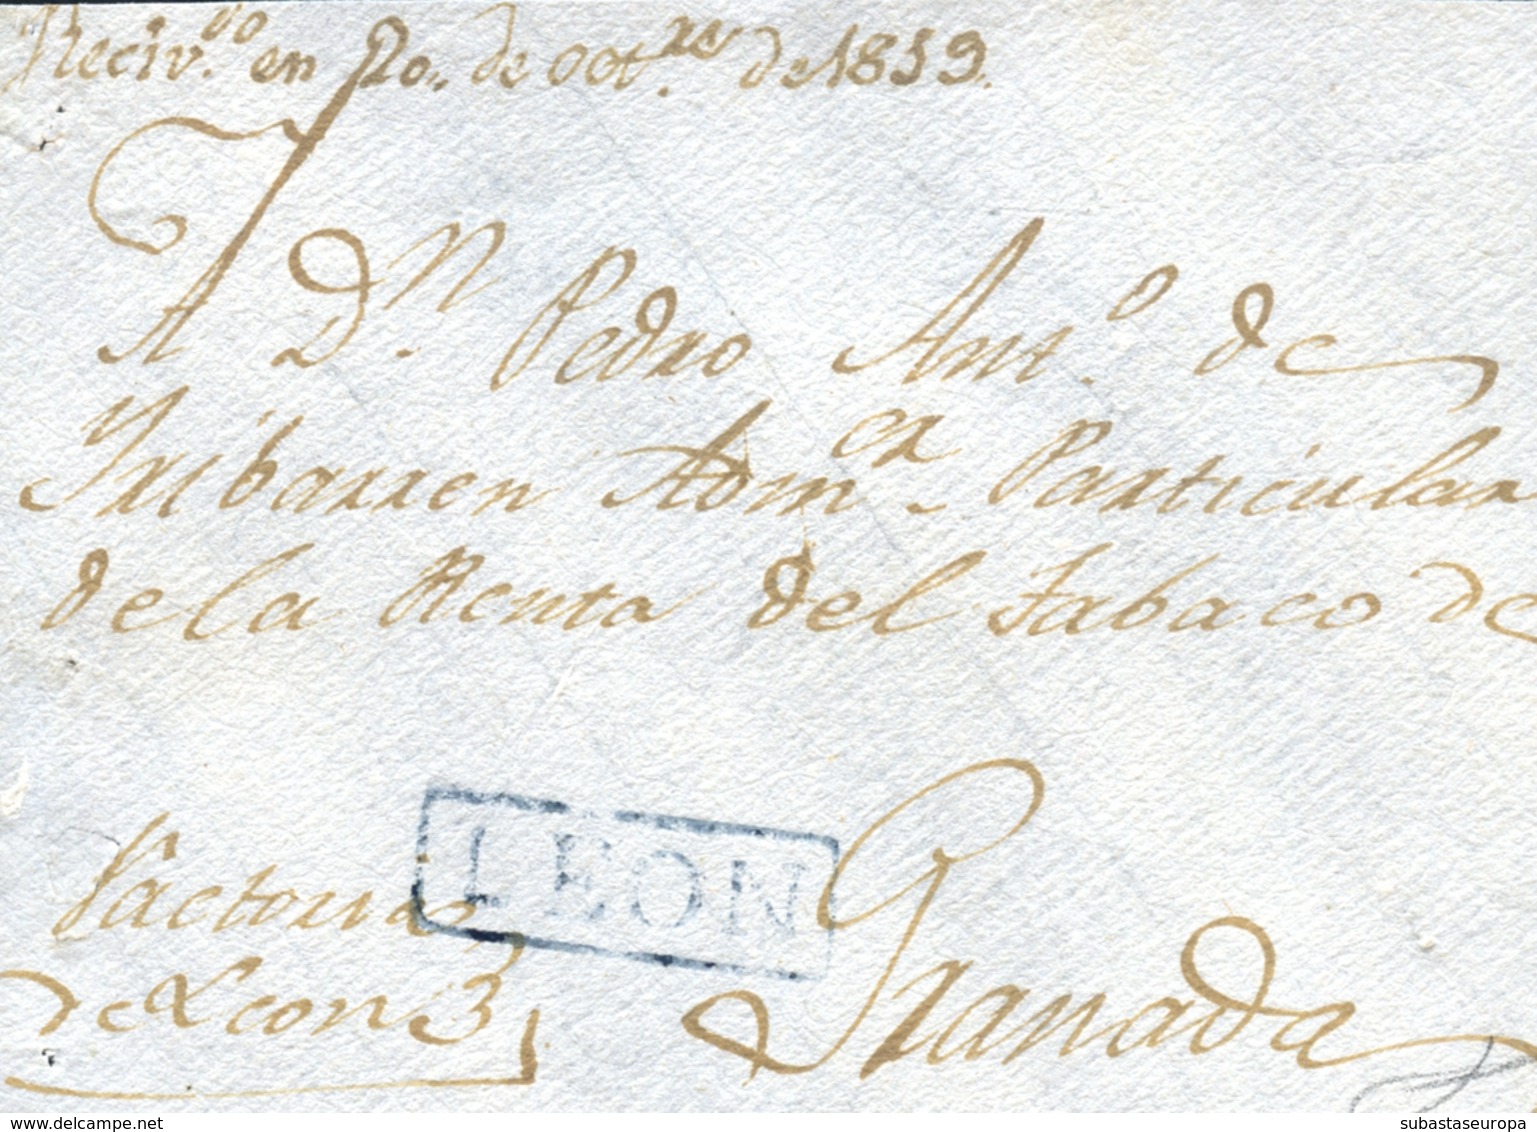 Reciv.do en 20,, de oct.re de 1859.
A D.n Pedro Ant.o de
Yribarren Adm.or Particular
de la Renta del Tabaco de
LEON
Granada
Factoria
de Leon
delcampe.net
subastaseuropa